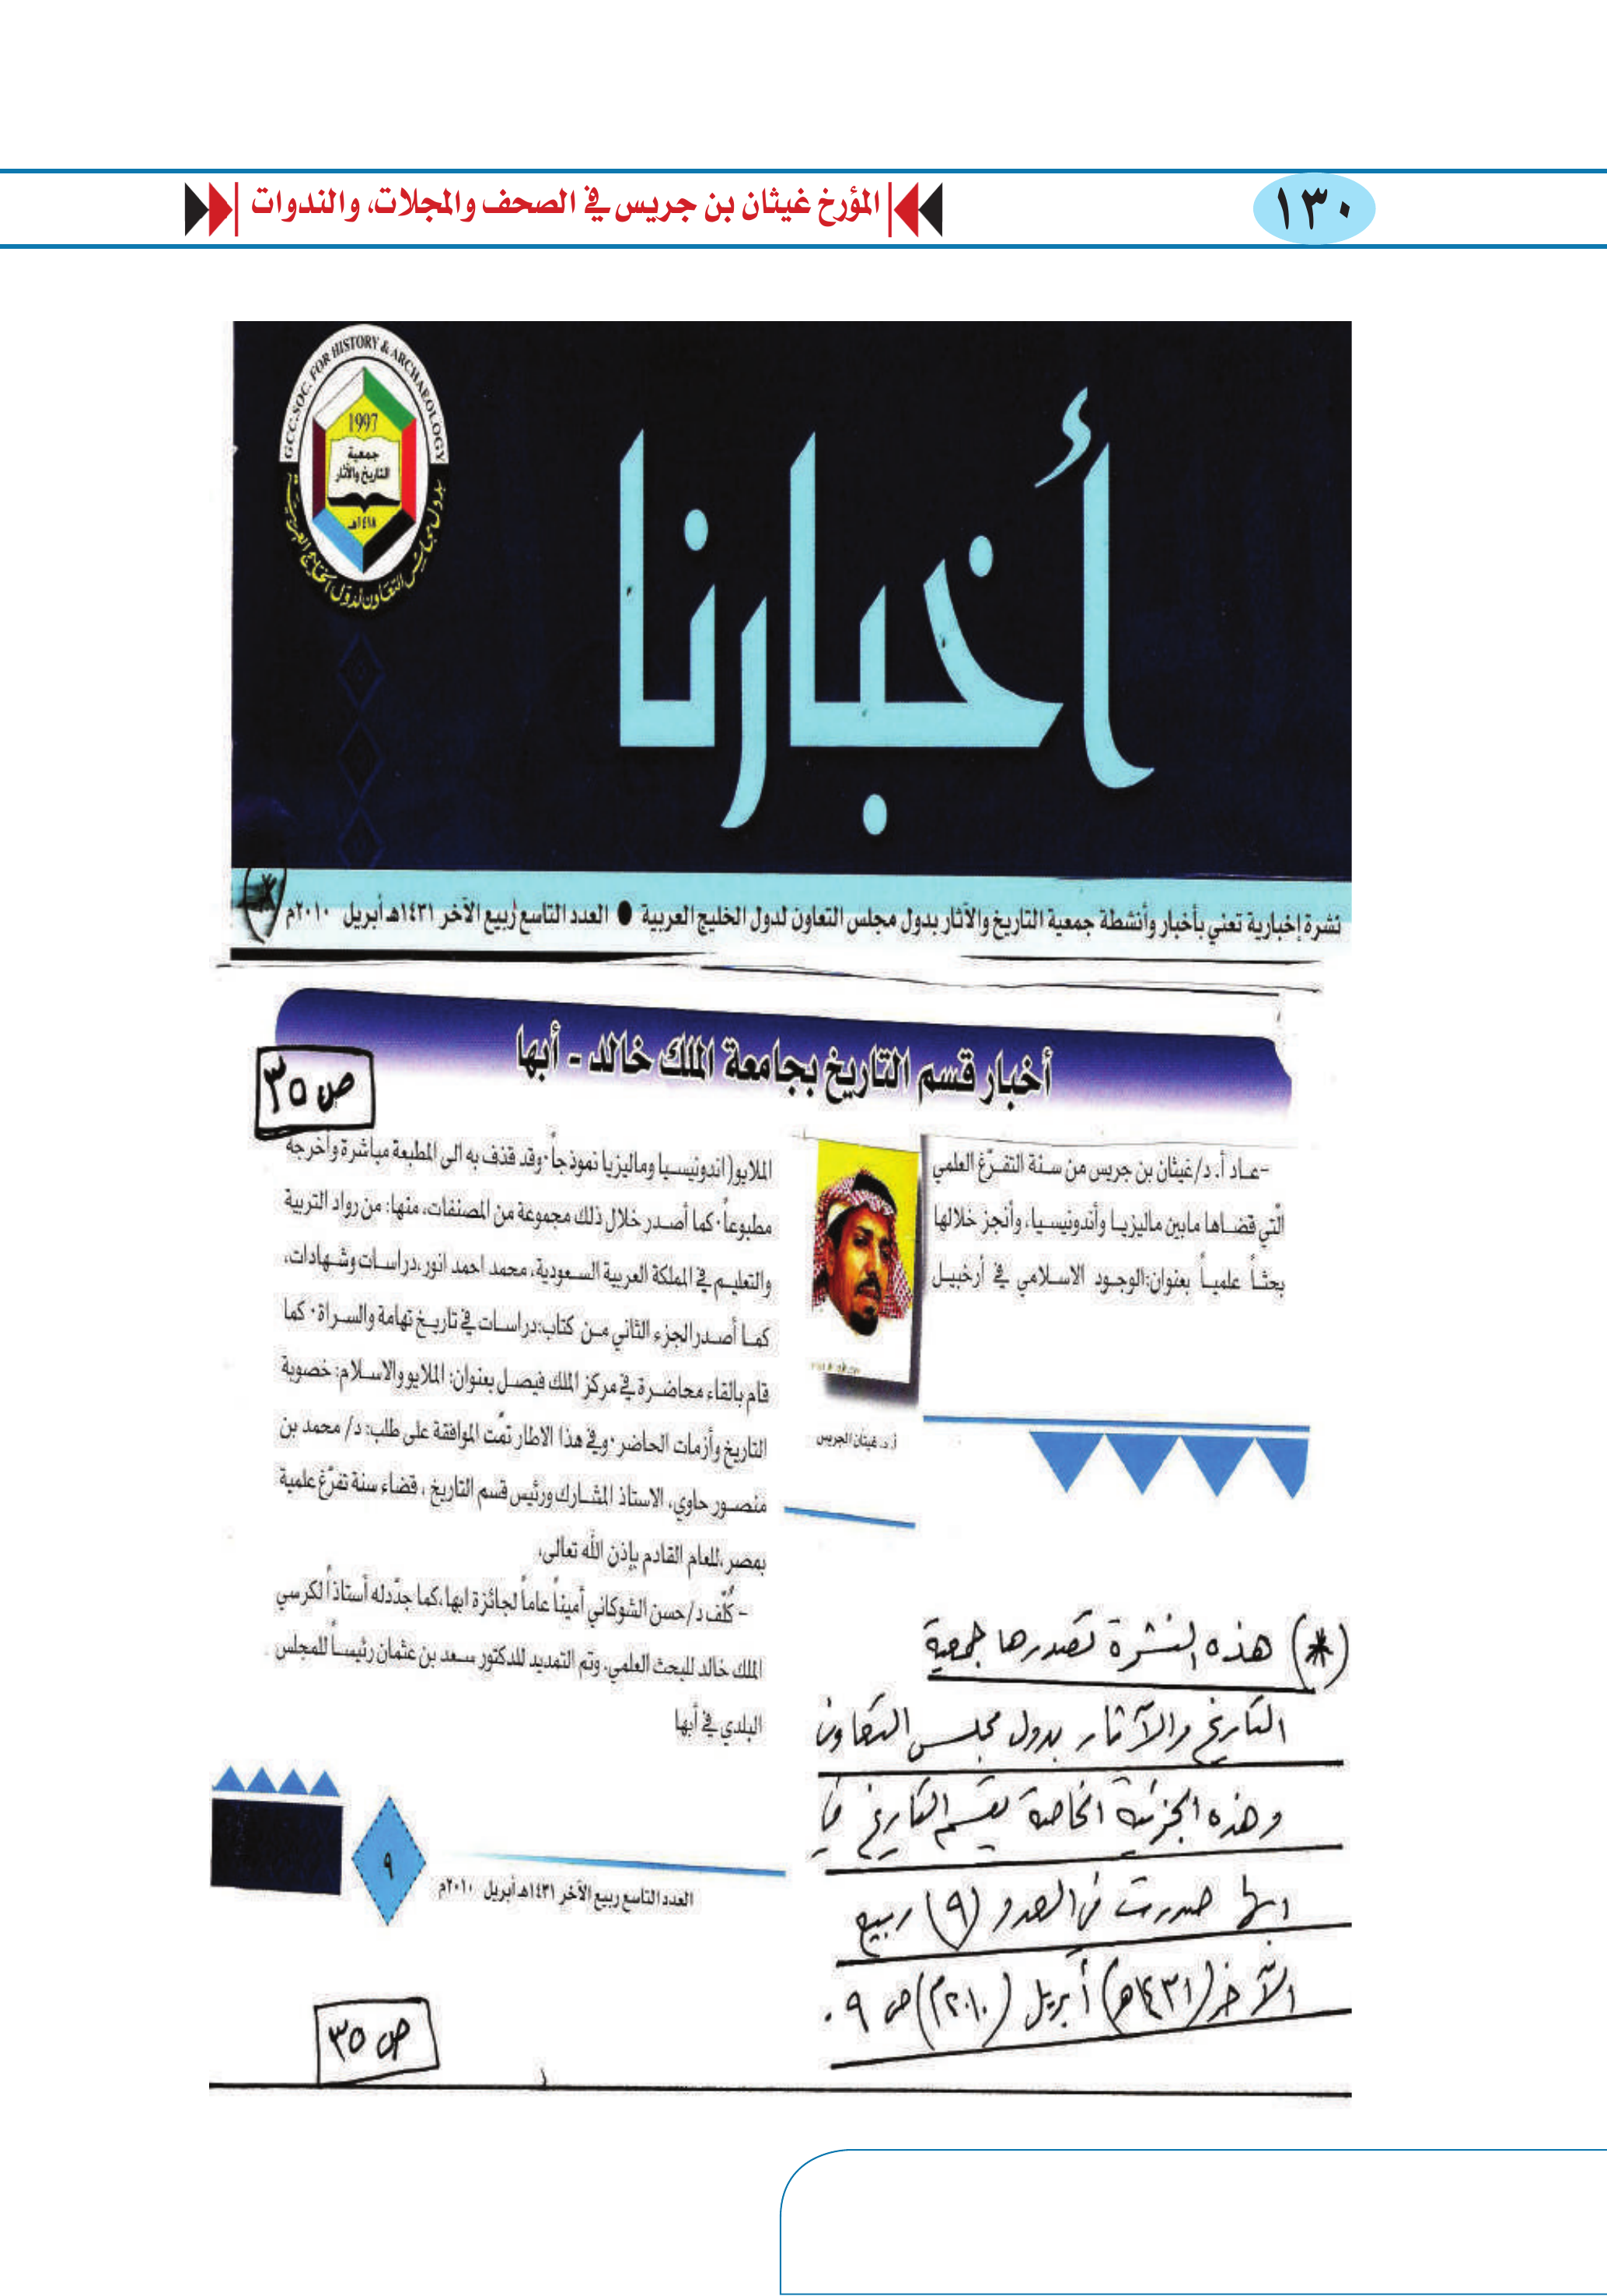 ١٣٠
المؤرخ غيثان بن جريس في الصحف والمجلات، والندوات
GCC. SOC. FOR HISTORY & ARCHAEOLOGY
1997
جمعية
التاريخ والآثار
١٤١٨هـ
بدول مجلس التعاون لدول الخليج العربية
أخبارنا
نشرة إخبارية تعني بأخبار وأنشطة جمعية التاريخ والآثار بدول مجلس التعاون لدول الخليج العربية ● العدد التاسع ربيع الآخر ١٤٣١هـ أبريل ٢٠١٠م
*
أخبار قسم التاريخ بجامعة الملك خالد - أبها
ص ٣٥
-عـاد أ. د/غيثان بن جريس من سـنة التفـرّغ العلمي
الّتي قضـاها مابين ماليزيـا وأندونيسـيا، وأنجز خلالها
بحثـاً علميـاً بعنوان:الوجـود الاسـلامي في أرخبيـل
أ. د. غيثان الجريس
الملايو(اندونيسـيا وماليزيا نموذجاً٠وقد قذف به الى المطبعة مباشرة وأخرجه
مطبوعاً٠ كما أصـدر خلال ذلك مجموعة من المصنفات، منها: من رواد التربية
والتعليـم في المملكة العربية السـعودية، محمد احمد انور،دراسـات وشـهادات،
كمـا أصـدرالجزء الثاني مـن كتاب:دراسـات في تاريـخ تهامة والسـراة٠ كما
قام بالقاء محاضـرة في مركز الملك فيصـل بعنوان: الملايو والاسـلام: خصوبة
التاريخ وأزمات الحاضر٠وفي هذا الاطار تمّت الموافقة على طلب: د/ محمد بن
منصـور حاوي، الاستاذ المشـارك ورئيس قسم التاريخ ، قضاء سنة تفرّغ علمية
بمصر،للعام القادم بإذن الله تعالى،
- كُلّف د/حسن الشوكاني أميناً عاماً لجائزة ابها،كما جدّدله أستاذاً لكرسي
الملك خالد للبحث العلمي، وتم التمديد للدكتور سـعد بن عثمان رئيسـاً للمجلس
البلدي في أبها
(*) هذه النشرة تصدرها جمعية
التاريخ والآثار بدول مجلس التعاون
وهذه الجزئية الخاصة بقسم التاريخ في
ابها صدرت في العدد (٩) ربيع
الآخر (١٤٣١هـ) أبريل (٢٠١٠م) ص ٩ .
٩
العدد التاسع ربيع الآخر ١٤٣١هـ أبريل ٢٠١٠م
ص ٣٥